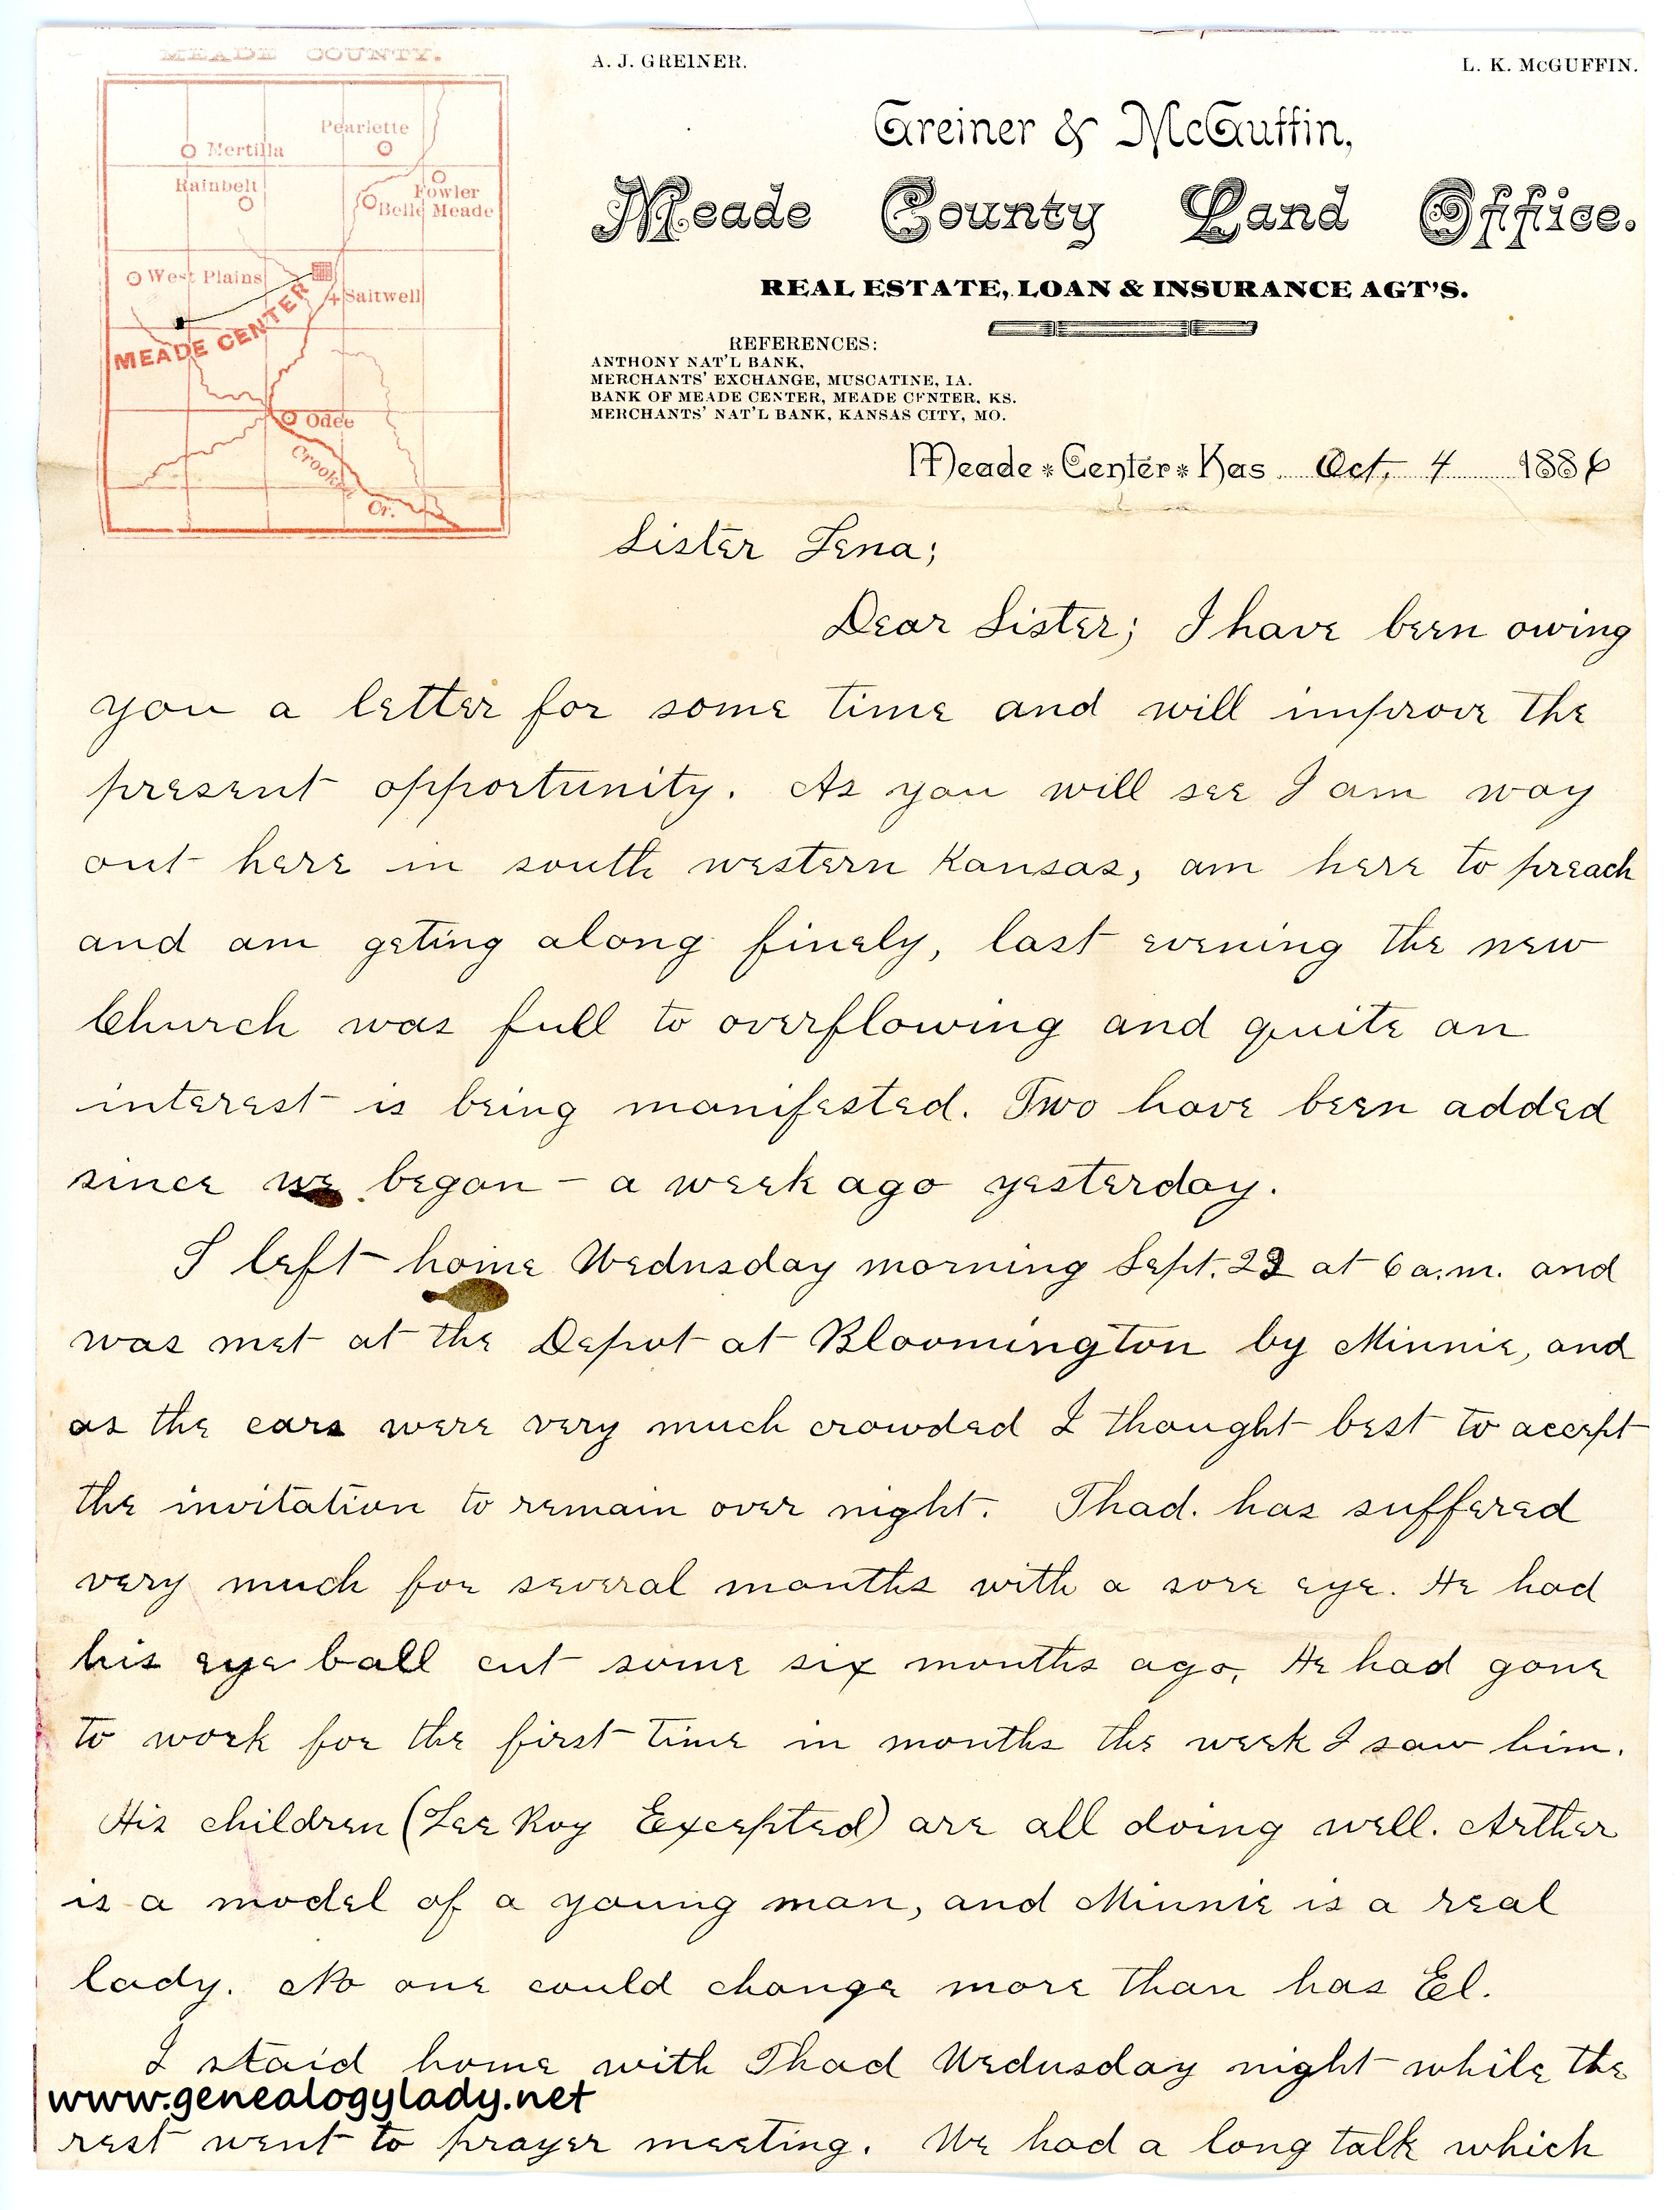 MEADE COUNTY.
Pearlette
Mertilla
Rainbelt
Fowler
Belle Meade
West Plains
Saitwell
MEADE CENTER
Odee
Crooked
Cr.
A. J. GREINER.
L. K. McGUFFIN.
Greiner & McGuffin,
Meade County Land Office.
REAL ESTATE, LOAN & INSURANCE AGT'S.
REFERENCES:
ANTHONY NAT'L BANK,
MERCHANTS' EXCHANGE, MUSCATINE, IA.
BANK OF MEADE CENTER, MEADE CENTER, KS.
MERCHANTS' NAT'L BANK, KANSAS CITY, MO.
Meade * Center * Kas Oct, 4 1886
Sister Lena;
Dear Sister; I have been owing
you a letter for some time and will improve the
present opportunity. As you will see I am way
out here in south western Kansas, am here to preach
and am geting along finely, last evening the new
Church was full to overflowing and quite an
interest is being manifested. Two have been added
since we began – a week ago yesterday.
I left home Wednsday morning Sept. 22 at 6 a.m. and
was met at the Depot at Bloomington by Minnie, and
as the cars were very much crowded I thought best to accept
the invitation to remain over night. Thad. has suffered
very much for several months with a sore eye. He had
his eye ball cut some six months ago, He had gone
to work for the first time in months the week I saw him.
His children (Lee Roy Excepted) are all doing well. Arther
is a model of a young man, and Minnie is a real
lady. No one could change more than has El.
I staid home with Thad Wednsday night while the
www.genealogylady.net
rest went to prayer meeting. We had a long talk which